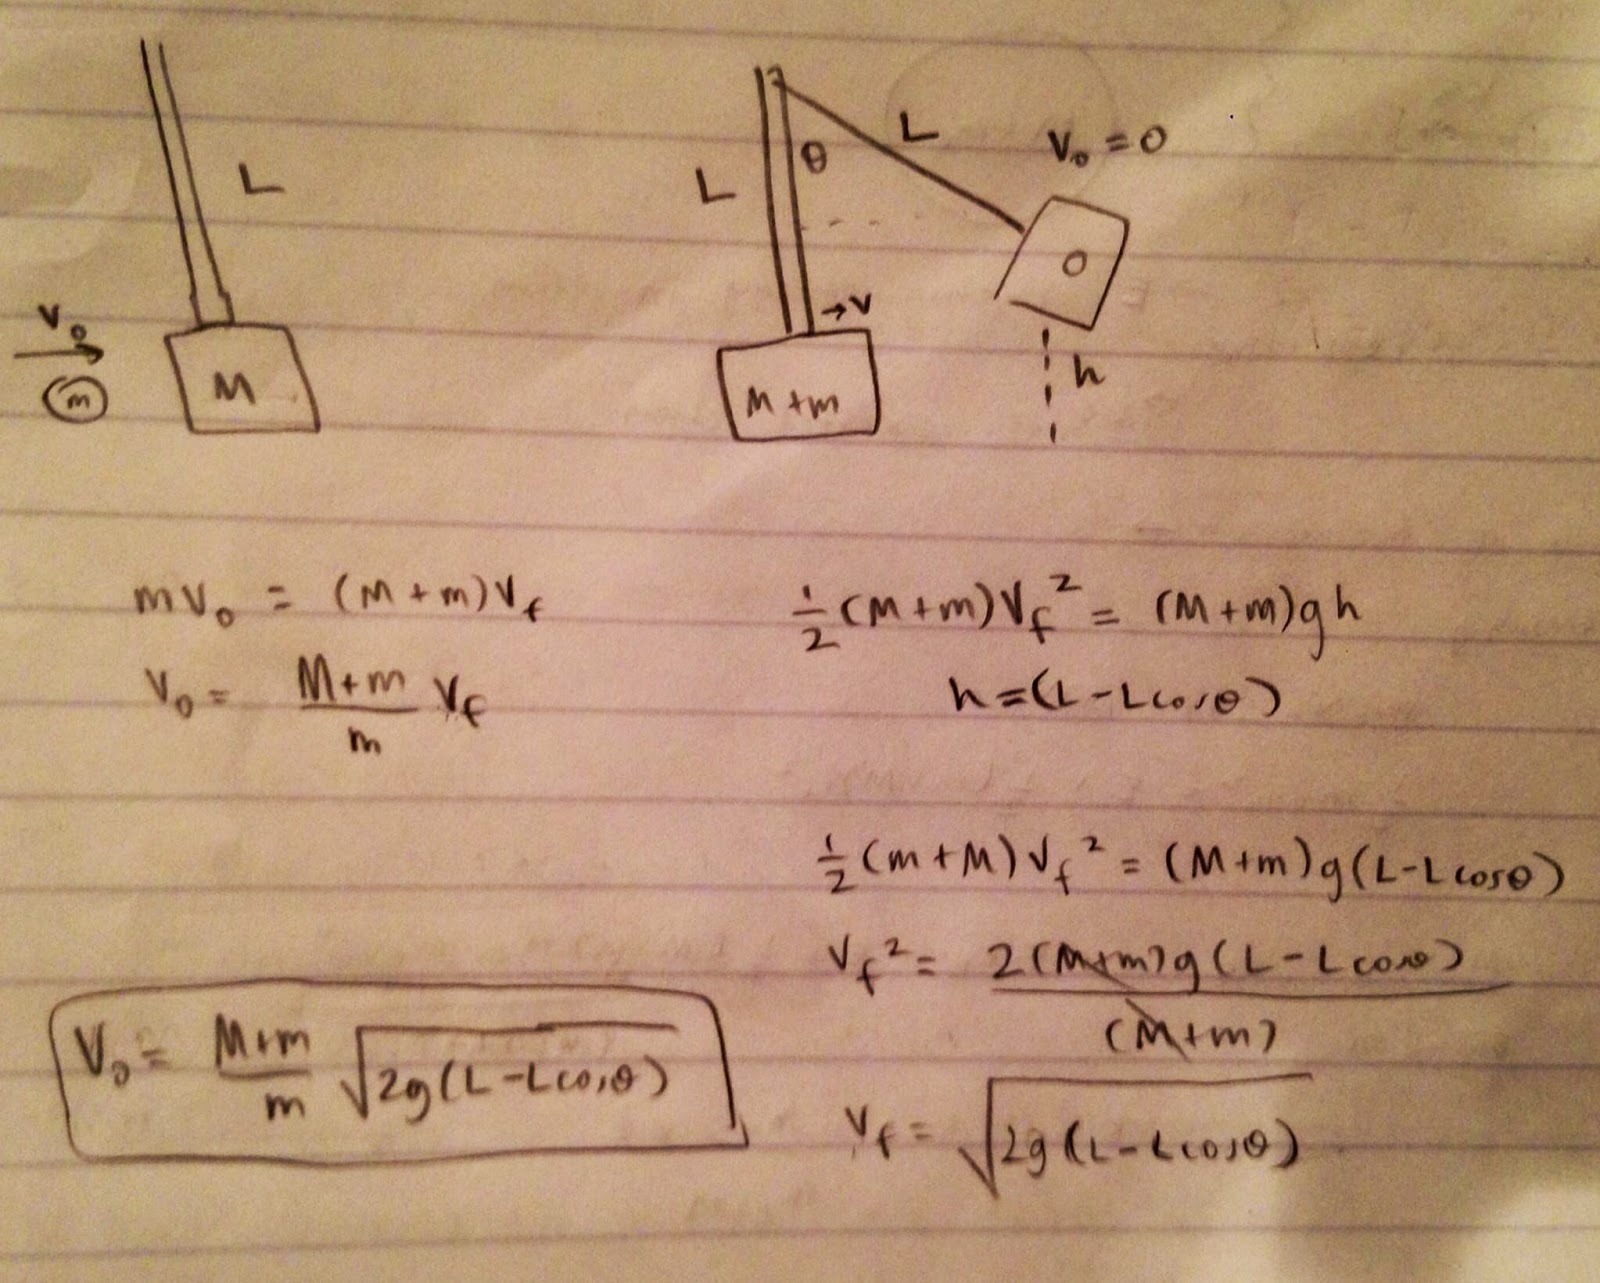 L
V₀
m
M
L
θ
L
V₀ = 0
→ V
M + m
h
mV₀ = (M + m)V_f
V₀ = (M + m)/m V_f
½(M + m)V_f² = (M + m)gh
h = (L - Lcosθ)
½(m + M)V_f² = (M + m)g(L - Lcosθ)
V_f² = 2(M + m)g(L - Lcosθ)/(M + m)
V_f = √(2g(L - Lcosθ))
V₀ = (M + m)/m √(2g(L - Lcosθ))